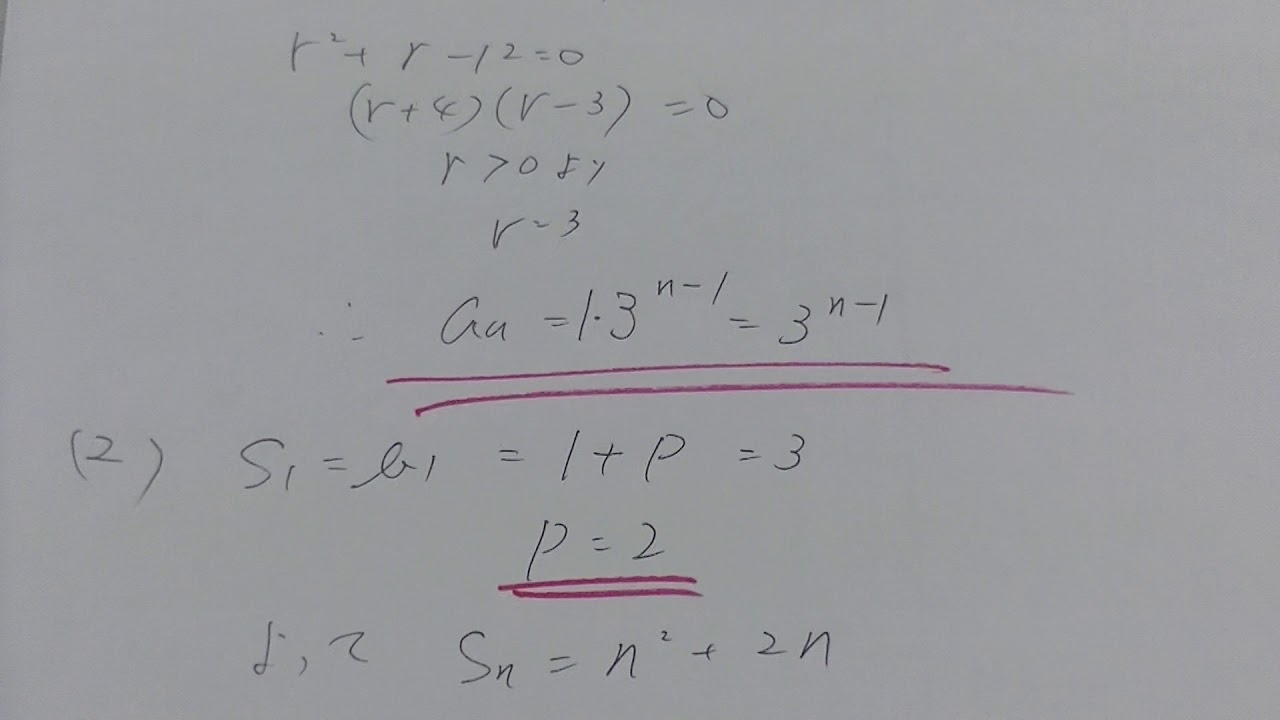 r² + r - 12 = 0
(r+4)(r-3) = 0
r > 0 より
r = 3
∴ an = 1・3^{n-1} = 3^{n-1}
(2) S₁ = b₁ = 1 + p = 3
p = 2
よって Sn = n² + 2n